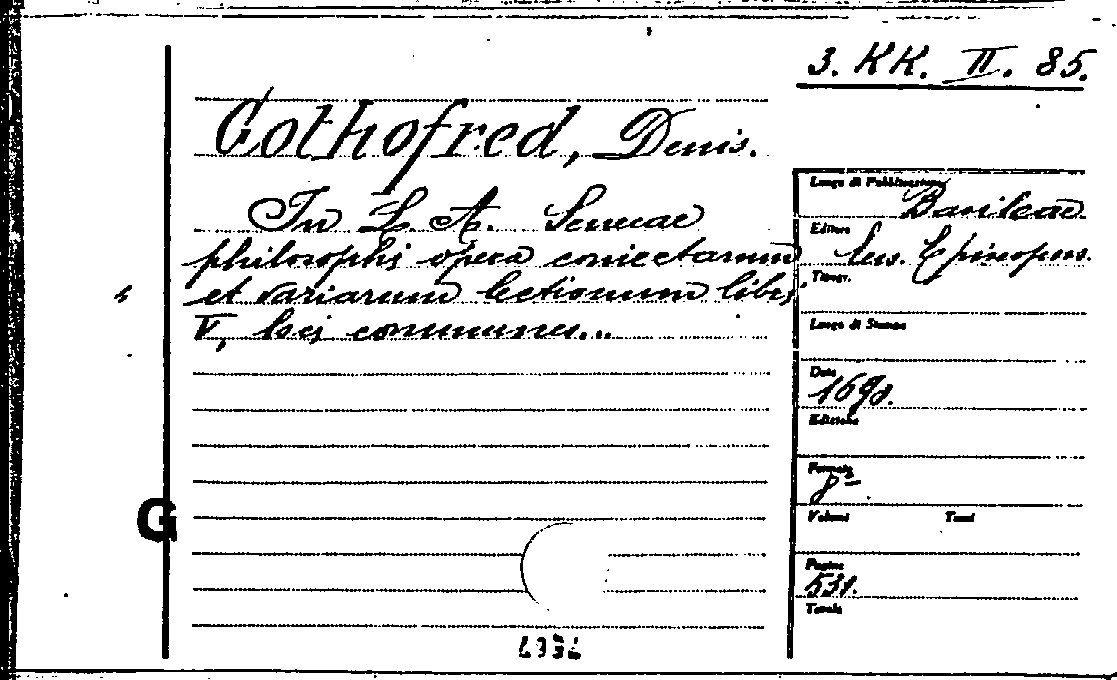 3. KK. II. 85.
Gothofred, Denis.
In L. A. Senecae
philosophi opera coniectarum
et variarum lectionum libri
V, loci communes...
Luogo di Pubblicazione
Basileae
Editore
Eus. Episcopus.
Tipogr.
Luogo di Stampa
Data
Edizione
Formato
8º
Volumi Tomi
Pagine
531.
Tavole
G